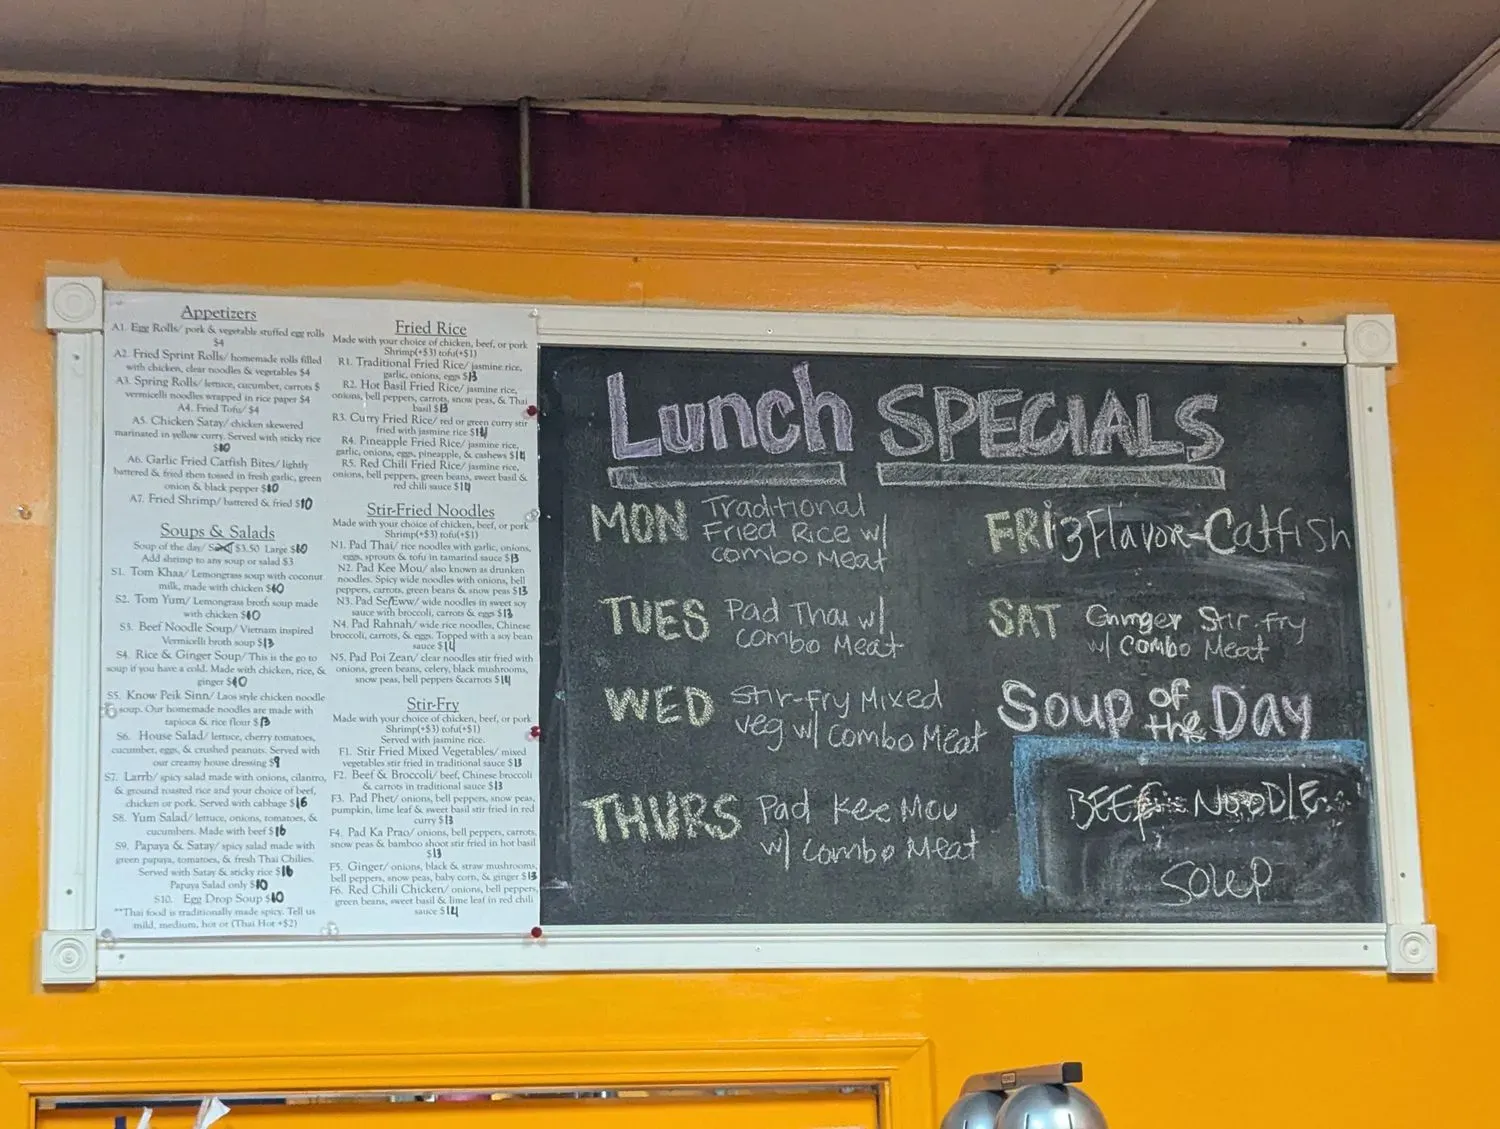 Appetizers
A1. Egg Rolls/ pork & vegetable stuffed egg rolls
$4
A2. Fried Sprint Rolls/ homemade rolls filled
with chicken, clear noodles & vegetables $4
A3. Spring Rolls/ lettuce, cucumber, carrots $
vermicelli noodles wrapped in rice paper $4
A4. Fried Tofu/ $4
A5. Chicken Satay/ chicken skewered
marinated in yellow curry. Served with sticky rice
$10
A6. Garlic Fried Catfish Bites/ lightly
battered & fried then tossed in fresh garlic, green
onion & black pepper $10
A7. Fried Shrimp/ battered & fried $10
Soups & Salads
Soup of the day/ $3.50 Large $10
Add shrimp to any soup or salad $3
S1. Tom Khaa/ Lemongrass soup with coconut
milk, made with chicken $10
S2. Tom Yum/ Lemongrass broth soup made
with chicken $10
S3. Beef Noodle Soup/ Vietnam inspired
Vermicelli broth soup $13
S4. Rice & Ginger Soup/ This is the go to
soup if you have a cold. Made with chicken, rice, &
ginger $10
S5. Know Peik Sinn/ Laos style chicken noodle
soup. Our homemade noodles are made with
tapioca & rice flour $13
S6. House Salad/ lettuce, cherry tomatoes,
cucumber, eggs, & crushed peanuts. Served with
our creamy house dressing $9
S7. Larrb/ spicy salad made with onions, cilantro,
& ground roasted rice and your choice of beef,
chicken or pork. Served with cabbage $16
S8. Yum Salad/ lettuce, onions, tomatoes, &
cucumbers. Made with beef $16
S9. Papaya & Satay/ spicy salad made with
green papaya, tomatoes, & fresh Thai Chilies.
Served with Satay & sticky rice $16
Papaya Salad only $10
S10. Egg Drop Soup $10
**Thai food is traditionally made spicy. Tell us
mild, medium, hot or (Thai Hot +$2)
Fried Rice
Made with your choice of chicken, beef, or pork
Shrimp(+$3) tofu(+$1)
R1. Traditional Fried Rice/ jasmine rice,
garlic, onions, eggs $13
R2. Hot Basil Fried Rice/ jasmine rice,
onions, bell peppers, carrots, snow peas, & Thai
basil $13
R3. Curry Fried Rice/ red or green curry stir
fried with jasmine rice $14
R4. Pineapple Fried Rice/ jasmine rice,
garlic, onions, eggs, pineapple, & cashews $14
R5. Red Chili Fried Rice/ jasmine rice,
onions, bell peppers, green beans, sweet basil &
red chili sauce $14
Stir-Fried Noodles
Made with your choice of chicken, beef, or pork
Shrimp(+$3) tofu(+$1)
N1. Pad Thai/ rice noodles with garlic, onions,
eggs, sprouts & tofu in tamarind sauce $13
N2. Pad Kee Mou/ also known as drunken
noodles. Spicy wide noodles with onions, bell
peppers, carrots, green beans & snow peas $13
N3. Pad Se/Eww/ wide noodles in sweet soy
sauce with broccoli, carrots & eggs $13
N4. Pad Rahnah/ wide rice noodles, Chinese
broccoli, carrots, & eggs. Topped with a soy bean
sauce $14
N5. Pad Poi Zean/ clear noodles stir fried with
onions, green beans, celery, black mushrooms,
snow peas, bell peppers &carrots $14
Stir-Fry
Made with your choice of chicken, beef, or pork
Shrimp(+$3) tofu(+$1)
Served with jasmine rice.
F1. Stir Fried Mixed Vegetables/ mixed
vegetables stir fried in traditional sauce $13
F2. Beef & Broccoli/ beef, Chinese broccoli
& carrots in traditional sauce $13
F3. Pad Phet/ onions, bell peppers, snow peas,
pumpkin, lime leaf & sweet basil stir fried in red
curry $13
F4. Pad Ka Prao/ onions, bell peppers, carrots,
snow peas & bamboo shoot stir fried in hot basil
$13
F5. Ginger/ onions, black & straw mushrooms,
bell peppers, snow peas, baby corn, & ginger $13
F6. Red Chili Chicken/ onions, bell peppers,
green beans, sweet basil & lime leaf in red chili
sauce $14
Lunch SPECIALS
MON Traditional
Fried Rice w/
combo Meat
TUES Pad Thai w/
combo Meat
WED Stir-fry Mixed
veg w/ combo Meat
THURS Pad Kee Mou
w/ combo Meat
FRI 3 Flavor-Catfish
SAT Ginger Stir-fry
w/ combo Meat
Soup of the Day
BEEF NOODLE
SOUP